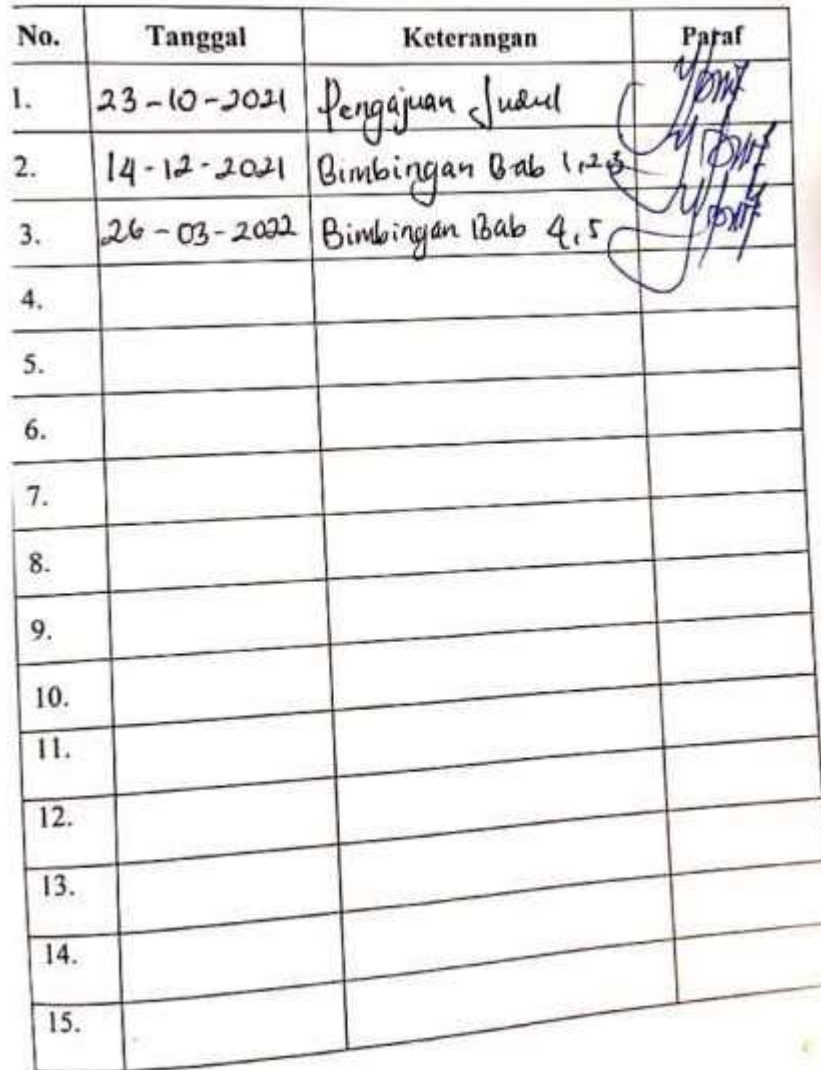 No. Tanggal Keterangan Paraf
1. 23-10-2021 Pengajuan Judul
2. 14-12-2021 Bimbingan Bab 1,2,3
3. 26-03-2022 Bimbingan Bab 4,5
4.
5.
6.
7.
8.
9.
10.
11.
12.
13.
14.
15.